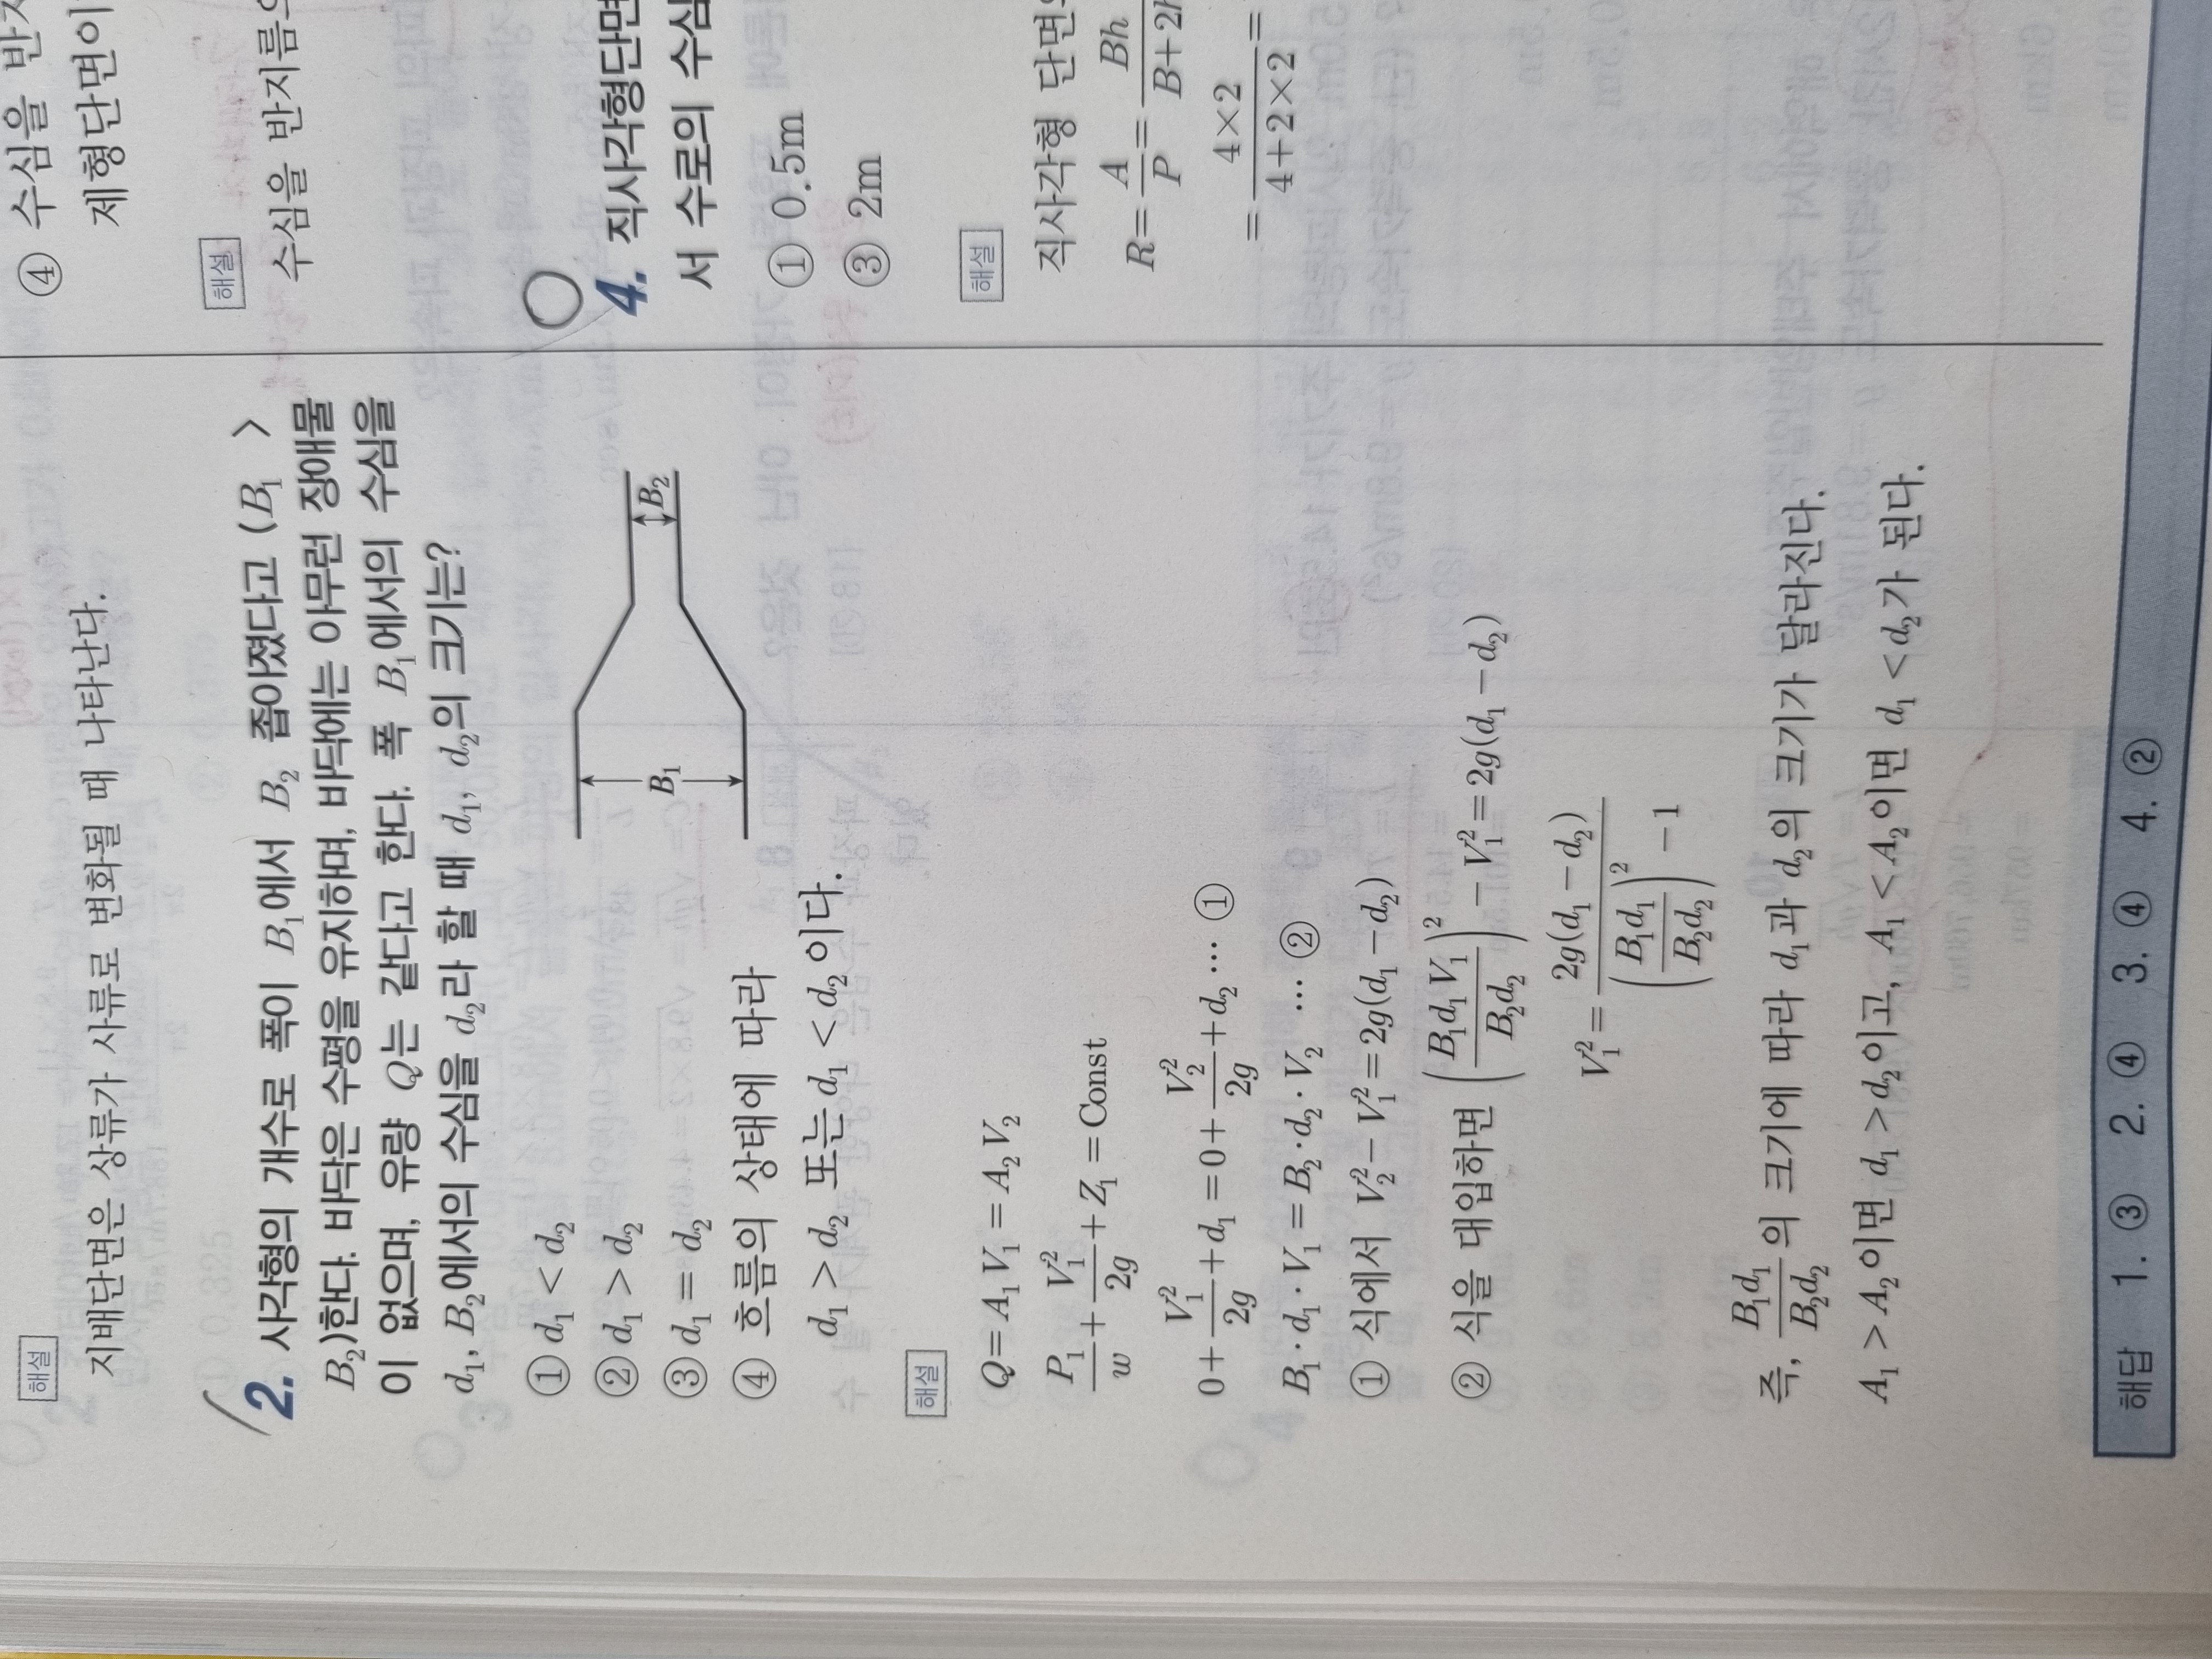 해설
지배단면은 상류가 사류로 변화될 때 나타난다.
2. 사각형의 개수로 폭이 B₁에서 B₂ 좁아졌다고 (B₁ >
B₂)한다. 바닥은 수평을 유지하며, 바닥에는 아무런 장애물
이 없으며, 유량 Q는 같다고 한다. 폭 B₁에서의 수심을
d₁, B₂에서의 수심을 d₂라 할 때 d₁, d₂의 크기는?
B₁
B₂
① d₁ < d₂
② d₁ > d₂
③ d₁ = d₂
④ 흐름의 상태에 따라
d₁ > d₂ 또는 d₁ < d₂ 이다.
해설
Q = A₁V₁ = A₂V₂
P₁/w + V₁²/2g + Z₁ = Const
0 + V₁²/2g + d₁ = 0 + V₂²/2g + d₂ … ①
B₁·d₁·V₁ = B₂·d₂·V₂ … ②
① 식에서 V₂² − V₁² = 2g(d₁ − d₂)
② 식을 대입하면 (B₁d₁V₁/B₂d₂)² − V₁² = 2g(d₁ − d₂)
V₁² = 2g(d₁ − d₂)/((B₁d₁/B₂d₂)² − 1)
즉, B₁d₁/B₂d₂의 크기에 따라 d₁과 d₂의 크기가 달라진다.
A₁ > A₂이면 d₁ > d₂이고, A₁ < A₂이면 d₁ < d₂가 된다.
④ 수심을 반지
제형단면이
해설
수심을 반지름으
4. 직사각형단면
서 수로의 수심
① 0.5m
③ 2m
해설
직사각형 단면
R = A/P = Bh/B+2h
= 4×2/4+2×2 =
해답 1. ③ 2. ④ 3. ④ 4. ②